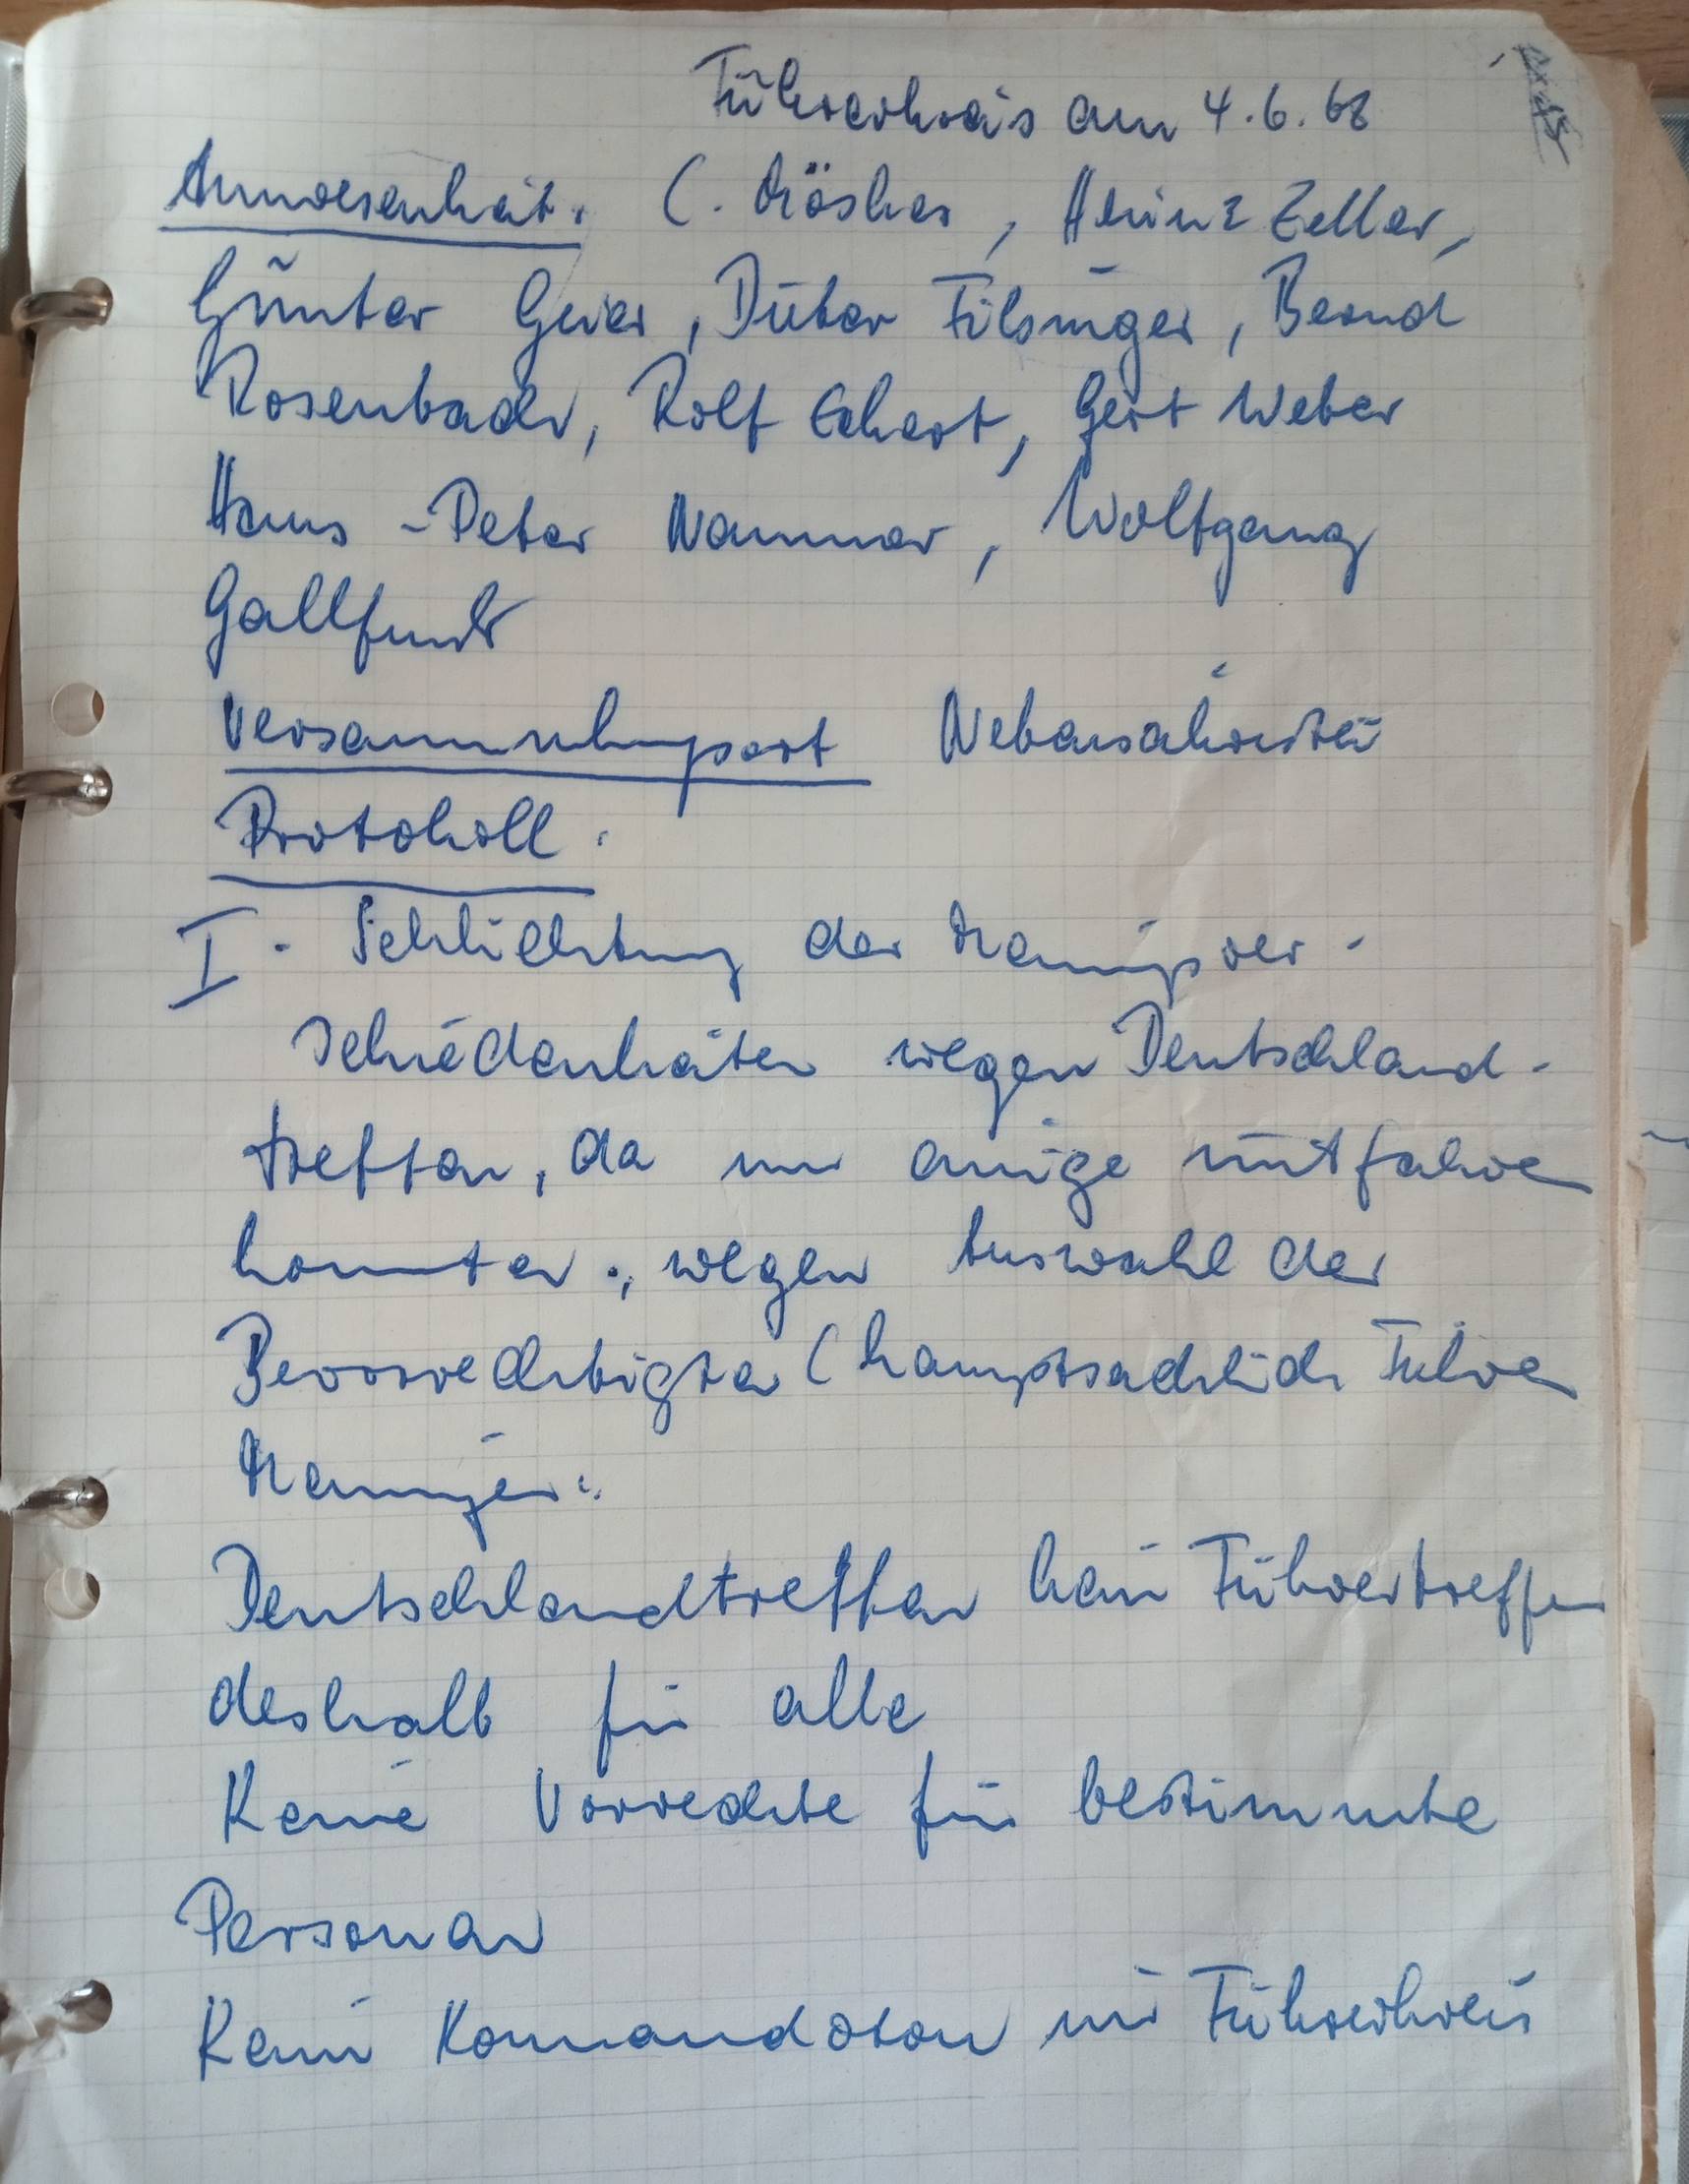 Führerkreis am 4.6.68
Anwesenheit: C. Möskes, Heinz Zeller,
Günter Geier, Dieter Filsinger, Bernd
Rosenbach, Rolf Eckert, Gert Weber
Hans-Peter Wammer, Wolfgang
Versammlungsort Nebensakristei
Protokoll:
I. Schlichtung der Meinungsver-
schiedenheiten wegen Deutschland-
treffen, da nur einige mitfahren
konnten., wegen Auswahl der
Bevorrechtigten (hauptsächlich Führer
Meinungen:
Deutschlandtreffen kein Führertreffen
deshalb für alle
Keine Vorrechte für bestimmte
Personen
Kein Kommandoton im Führerkreis